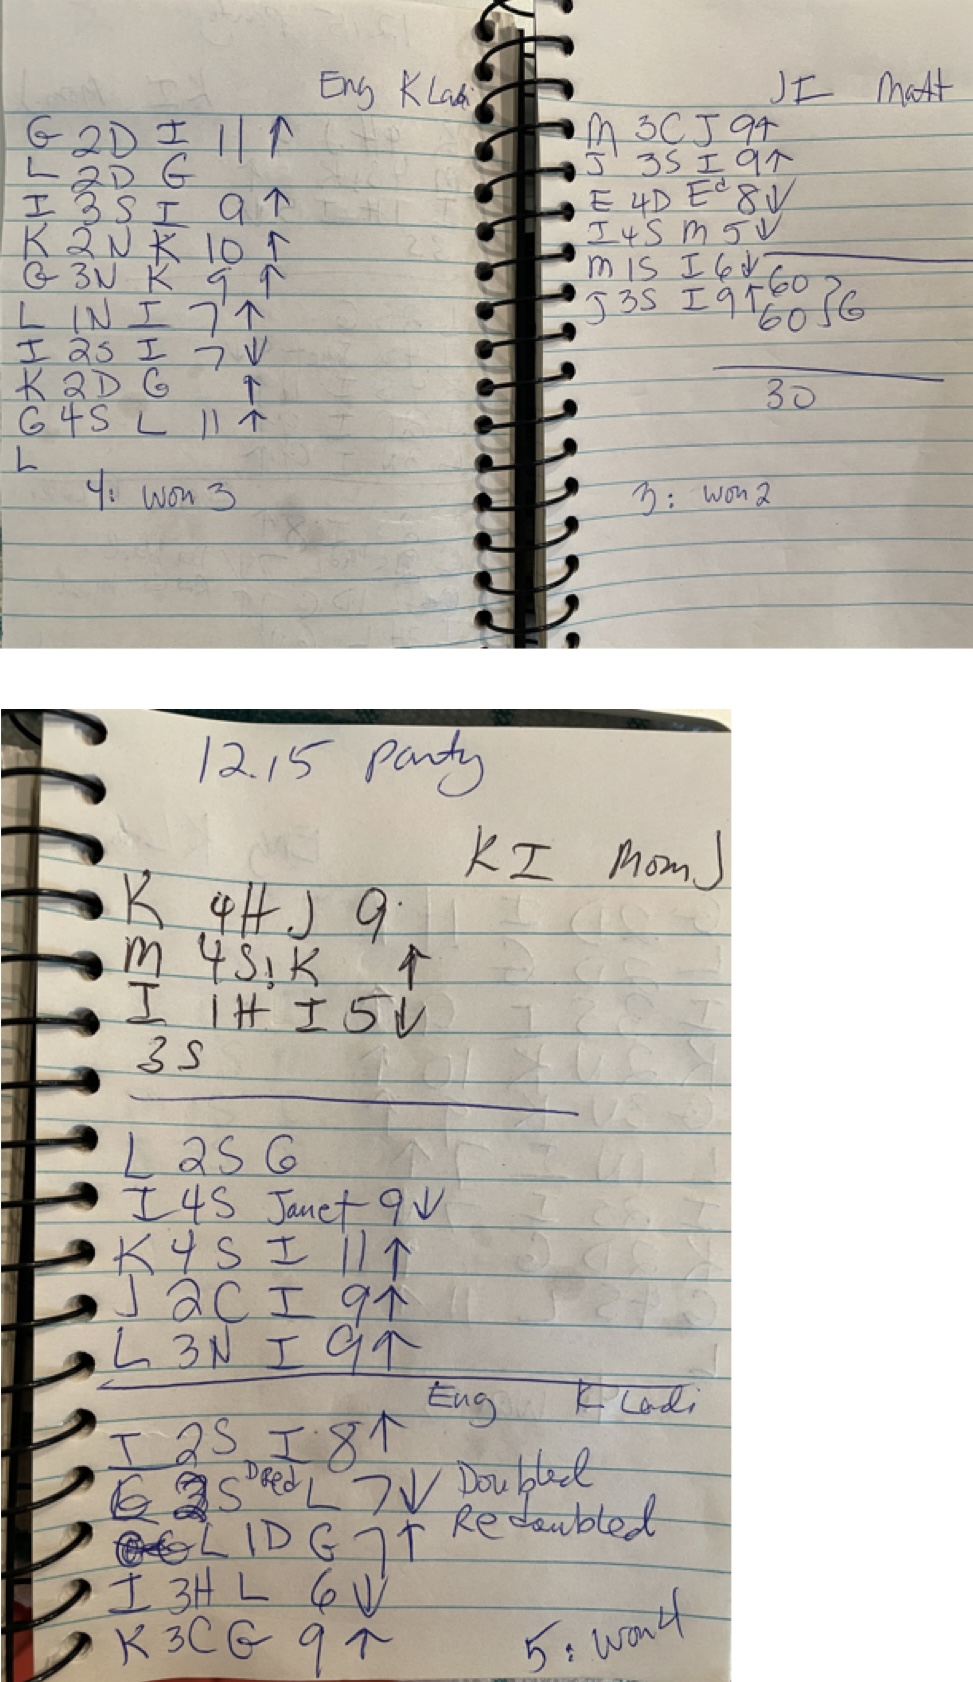 Eng K Ladi
G 2D I 11 ↑
L 2D G
I 3S I 9 ↑
K 2N K 10 ↑
G 3N K 9 ↑
L 1N I 7 ↑
I 2S I 7 ↓
K 2D G ↑
G 4S L 11 ↑
L
4: won 3
JI Matt
M 3C J 9↑
J 3S I 9↑
E 4D Ed 8↓
I 4S M 5↓
M 1S I 6↓ 60
J 3S I 9↑ 60 } G
30
3: won 2
12.15 party
K I Mom J
K 4H J 9.
M 4S! K ↑
I 1H I 5↓
3S
L 2S G
I 4S Janet 9↓
K 4S I 11↑
J 2C I 9↑
L 3N I 9↑
Eng K Ladi
I 2S I 8↑
G 3S L 7↓ Doubled
L 1D G 7↑ Redoubled
I 3H L 6↓
K 3C G 9 ↑
5: won 4